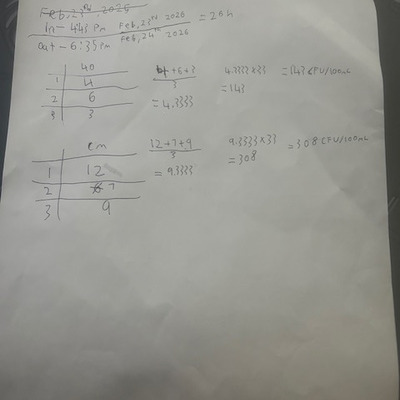 Feb, 23rd, 2026
In - 4:43 pm Feb, 23rd 2026 = 26 h
out - 6:35 pm Feb, 24th 2026
40
1 4
2 6
3 3
4+6+3 / 3
= 4.3333
4.3333 x 33 = 143 CFU/100mL
= 143
cm
1 12
2 7
3 9
12+7+9 / 3
= 9.3333
9.3333 x 33 = 308 CFU/100mL
= 308